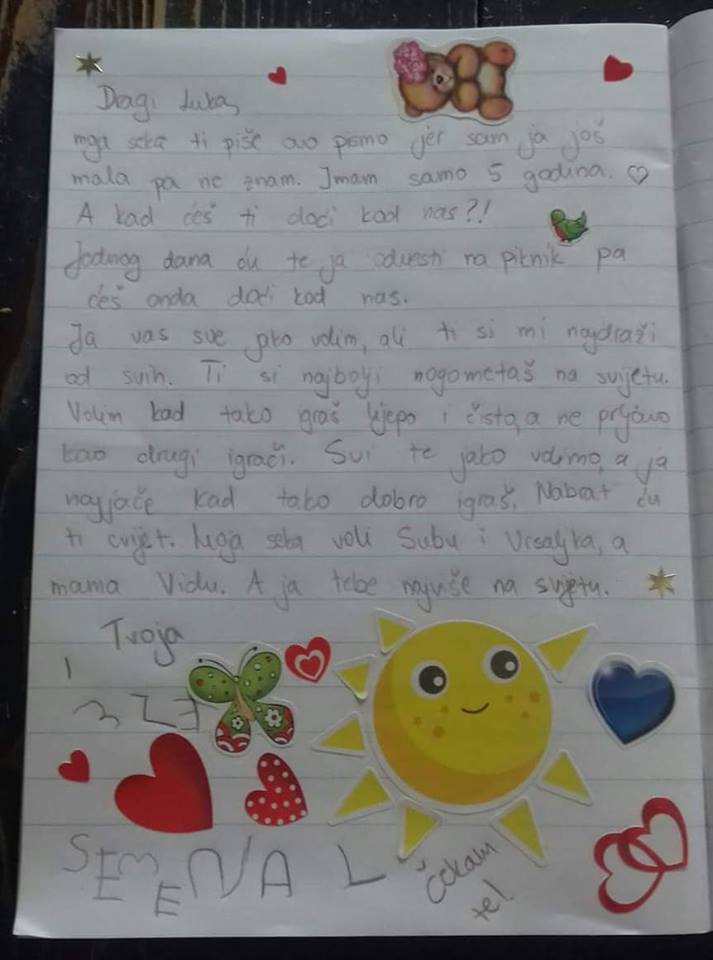 Dragi Luka,
moja seka ti piše ovo pismo jer sam ja još
mala pa ne znam. Imam samo 5 godina. ♡
A kad ćeš ti doći kod nas?!
Jednog dana ću te ja odvesti na piknik pa
ćeš onda doći kod nas.
Ja vas sve jako volim, ali ti si mi najdraži
od svih. Ti si najbolji nogometaš na svijetu.
Volim kad tako igraš lijepo i čisto, a ne prljavo
kao drugi igrači. Svi te jako volimo, a ja
najjače kad tako dobro igraš. Nabrat ću
ti cvijet. Moja seka voli Subu i Vrsaljka, a
mama Vidu. A ja tebe najviše na svijetu.
Tvoja
SEMENA L
Čekam
te!